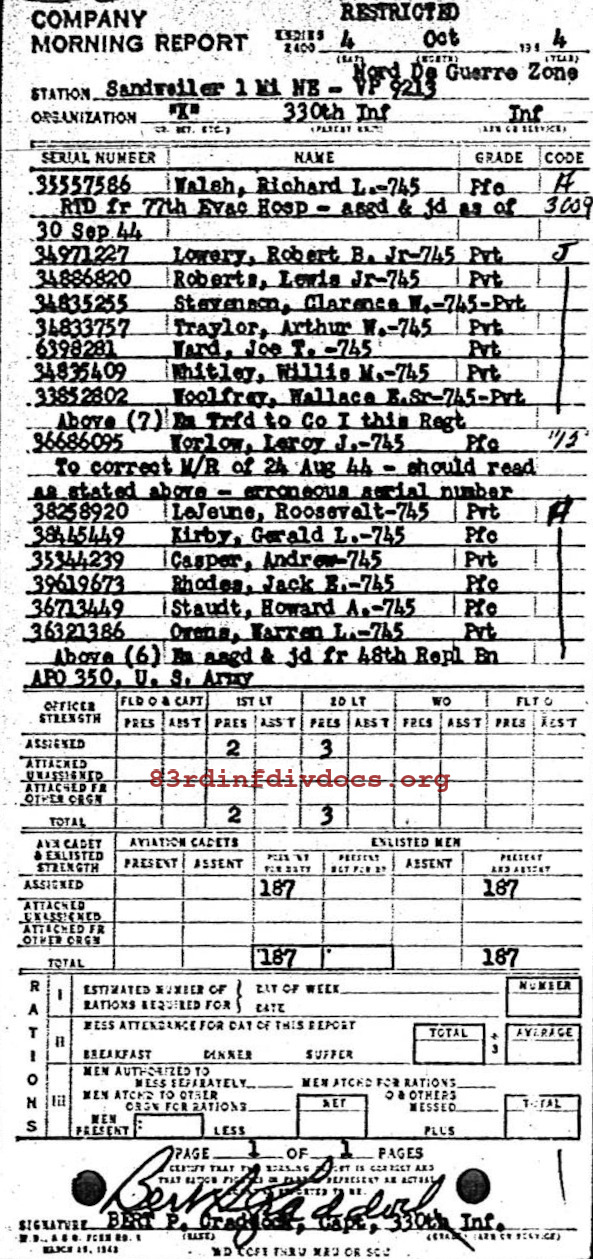 COMPANY RESTRICTED
MORNING REPORT ENDING 2400 4 Oct 194 4
(DAY) (MONTH) (YEAR)
Nord De Guerre Zone
STATION Sandweiler 1 Mi NE - VP 9213
ORGANIZATION "K" 330th Inf Inf
(PARENT UNIT) (ARM OR SERVICE)
SERIAL NUMBER NAME GRADE CODE
35557586 Walsh, Richard L.-745 Pfc A
RTD fr 77th Evac Hosp - asgd & jd as of 3009
30 Sep 44
34971227 Lowery, Robert B. Jr-745 Pvt J
34886820 Roberts, Lewis Jr-745 Pvt
34835255 Stevenson, Clarence W.-745-Pvt
34833757 Traylor, Arthur W.-745 Pvt
6398281 Ward, Joe T. -745 Pvt
34835409 Whitley, Willis M.-745 Pvt
33852802 Woolfrey, Wallace E.Sr-745-Pvt
Above (7) Em Trfd to Co I this Regt
36686095 Worlow, Leroy J.-745 Pfc
To correct M/R of 24 Aug 44 - should read
as stated above - erroneous serial number
38258920 LeJeune, Roosevalt-745 Pvt A
38445449 Kirby, Gerald L.-745 Pfc
35344239 Casper, Andrew-745 Pvt
39619673 Rhodes, Jack E.-745 Pfc
36713449 Staudt, Howard A.-745 Pfc
36321386 Owens, Warren L.-745 Pvt
Above (6) Em asgd & jd fr 48th Repl Bn
APO 350, U. S. Army
OFFICER STRENGTH FLD O & CAPT 1ST LT 2D LT WO FLT O
PRES ABST PRES ABST PRES ABST PRES ABST PRES ABST
ASSIGNED 2 3
ATTACHED UNASSIGNED
83rdinfdivdocs.org
ATTACHED FR OTHER ORGN
TOTAL 2 3
AVN CADET & ENLISTED STRENGTH AVIATION CADETS ENLISTED MEN
PRESENT ABSENT PRESENT FOR DUTY PRESENT NOT FOR DY ABSENT PRESENT AND ABSENT
ASSIGNED 187 187
ATTACHED UNASSIGNED
ATTACHED FR OTHER ORGN
TOTAL 187 187
RATIONS
I ESTIMATED NUMBER OF RATIONS REQUIRED FOR DAY OF WEEK NUMBER
DATE
II MESS ATTENDANCE FOR DAY OF THIS REPORT TOTAL ÷ 3 AVERAGE
BREAKFAST DINNER SUPPER
III MEN AUTHORIZED TO MESS SEPARATELY MEN ATCHD FOR RATIONS
MEN ATCHD TO OTHER ORGN FOR RATIONS NET O & OTHERS MESSED TOTAL
MEN PRESENT LESS PLUS
PAGE 1 OF 1 PAGES
SIGNATURE BERT P. Craddock, Capt, 330th Inf.
W.D., A.G.O. FORM NO. 1 (NAME) (GRADE) (ARM OR SERVICE)
MARCH 15, 1943